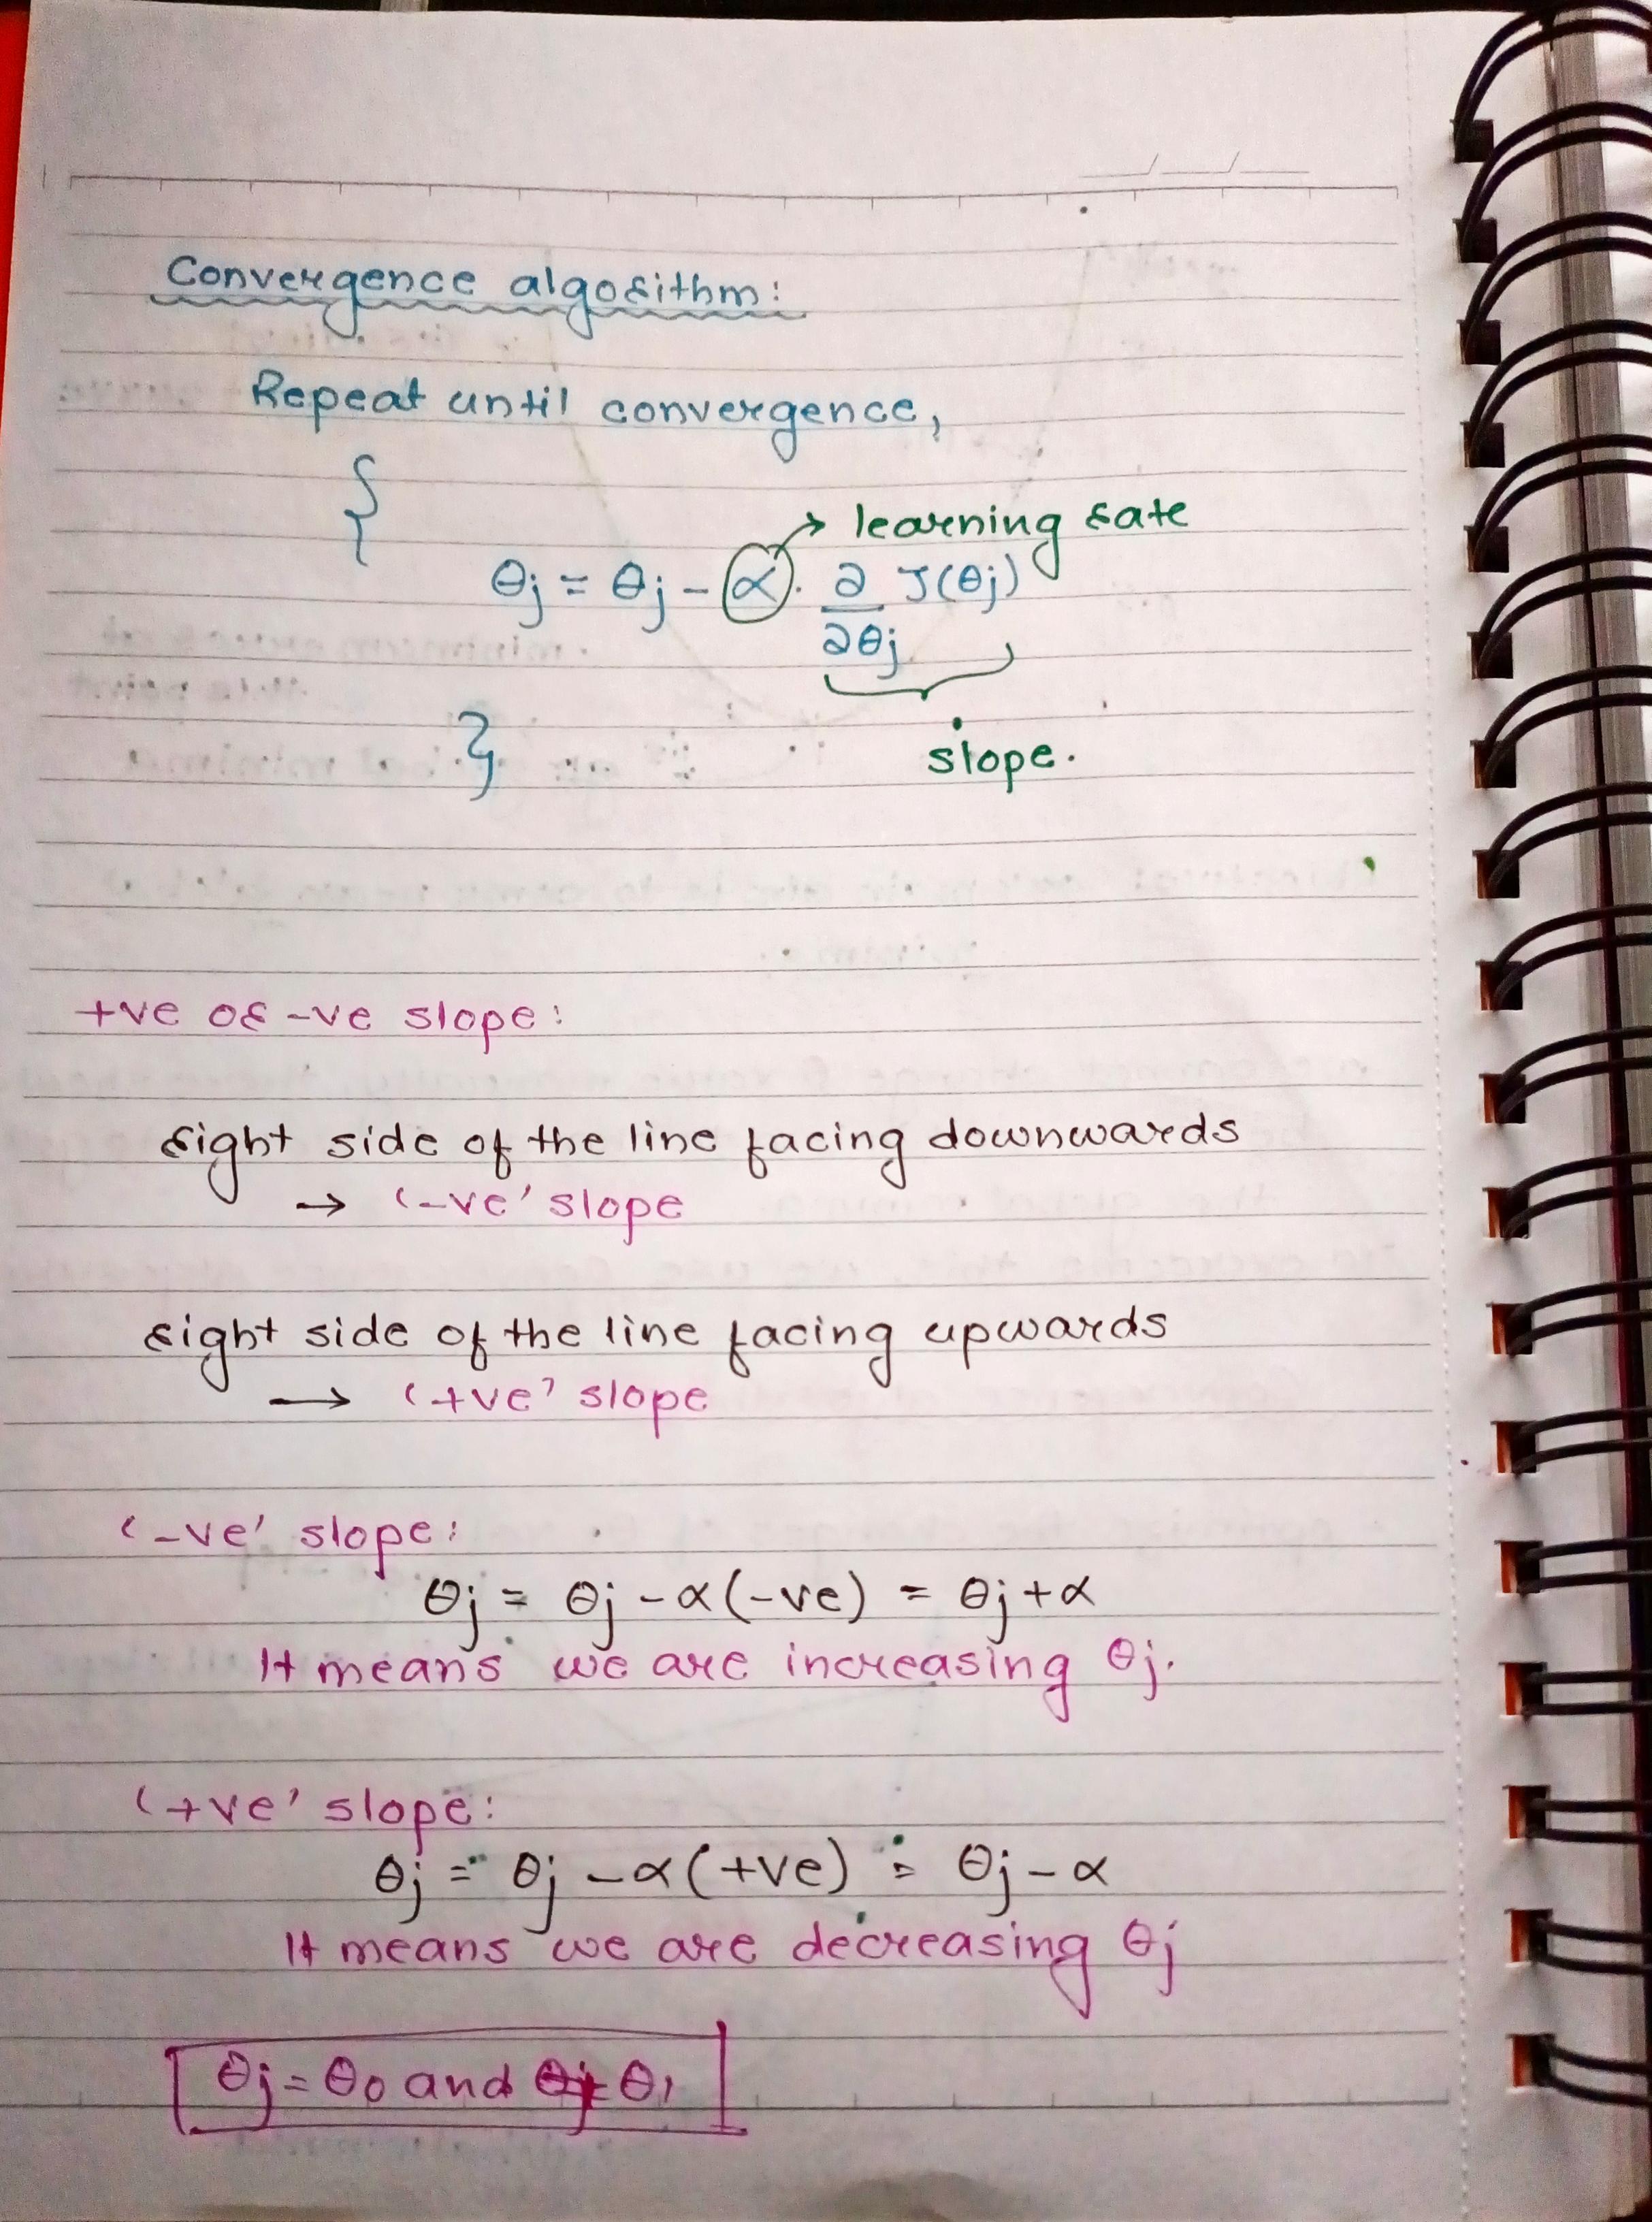 Convergence algorithm:
Repeat until convergence,
{
→ learning rate
θj = θj - α . ∂/∂θj J(θj)
}
slope.
+ve or -ve slope:
right side of the line facing downwards
→ '-ve' slope
right side of the line facing upwards
→ '+ve' slope
'-ve' slope:
θj = θj - α(-ve) = θj + α
It means we are increasing θj.
'+ve' slope:
θj = θj - α(+ve) = θj - α
It means we are decreasing θj
θj = θ0 and θj = θ1